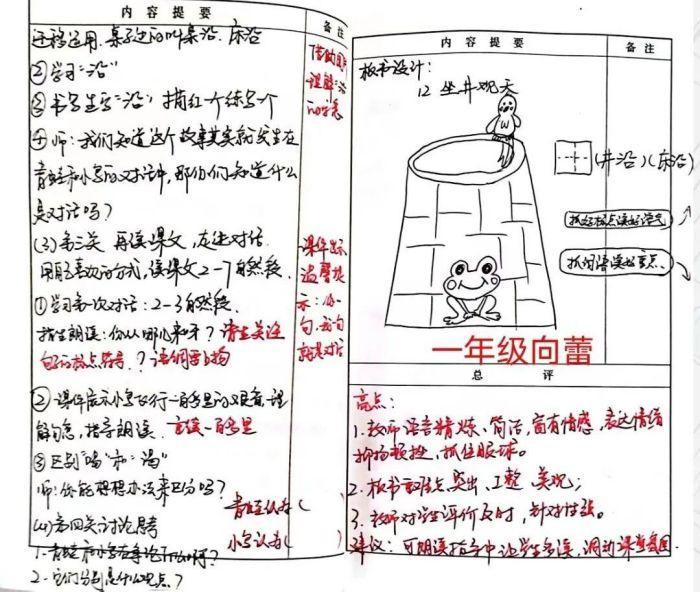 内容提要
备注
迁移运用.桌子边的叫桌沿.床沿
②学习“沿”
③书写生字“沿”描红一个练写一个
④师：我们知道这个故事其实就发生在
青蛙和小鸟的对话中,那你们知道什么
是对话吗？
(3)第三关 再读课文,
用自己喜欢的方式,读课文2-7自然段.
①学习第一次对话：2-3自然段.
指生朗读：你从哪儿来呀？请生关注
句的标点符号.？语调要上扬
②课件展示小鸟飞行一百多里的艰难,理
解句意,指导朗读. 重读一百多里
③区别“喝”和“渴”
师：你能想想办法来区分吗？
(4)第四关讨论思考
青蛙认为(
小鸟认为( )
1.青蛙和小鸟在争论什么呀？
2.它们分别是什么观点？
借助图片
理解“沿”
的字意
课件出示
温馨提
示：
句,
就是对话
内容提要
备注
板书设计：
12 坐井观天
(井沿)(床沿)
抓好标点读好语气
抓问语读好重点
一年级向蕾
总评
亮点：
1.教师语言精炼、简洁,富有情感,表达情绪
抑扬顿挫,抓住眼球。
2.板书重难点突出、工整、美观；
3.教师对学生评价及时,针对性强。
建议：可朗读指导中让学生多读,调动课堂氛围.